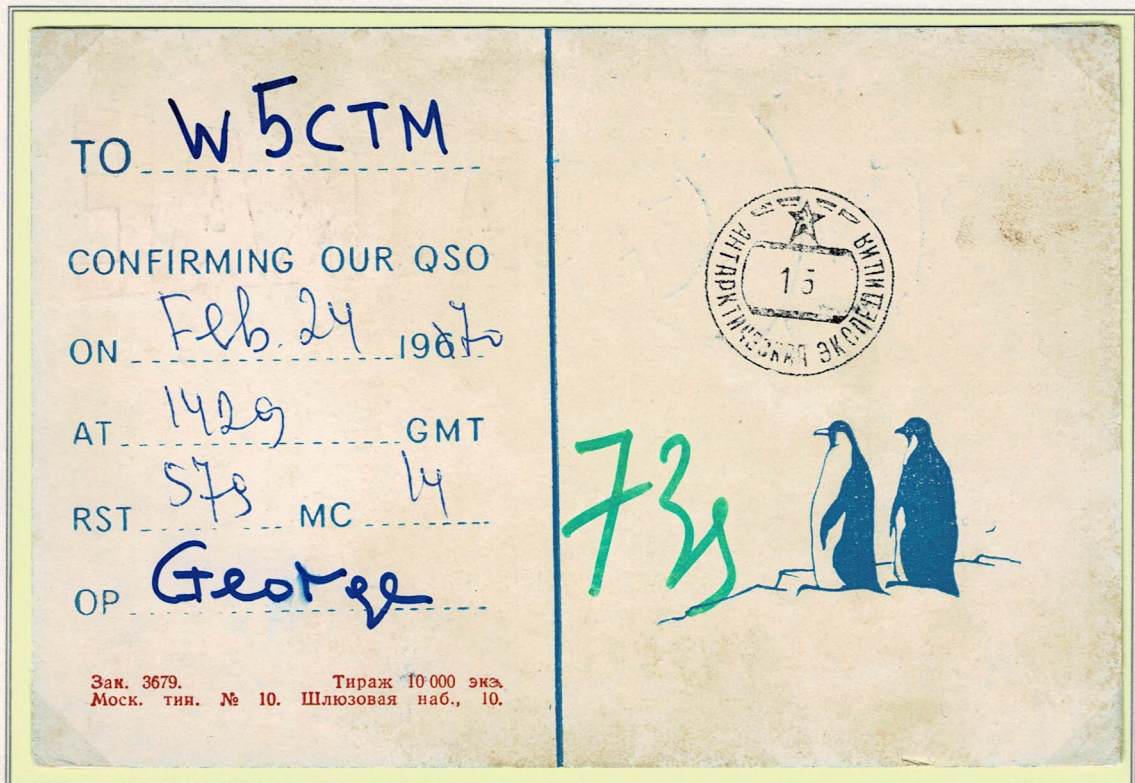 TO W5CTM
CONFIRMING OUR QSO
ON Feb. 24 1970
AT 1429 GMT
RST 579 MC 14
OP George
Зак. 3679. Тираж 10 000 экз.
Моск. тип. № 10. Шлюзовая наб., 10.
СССР
АНТАРКТИЧЕСКАЯ ЭКСПЕДИЦИЯ
15
73s